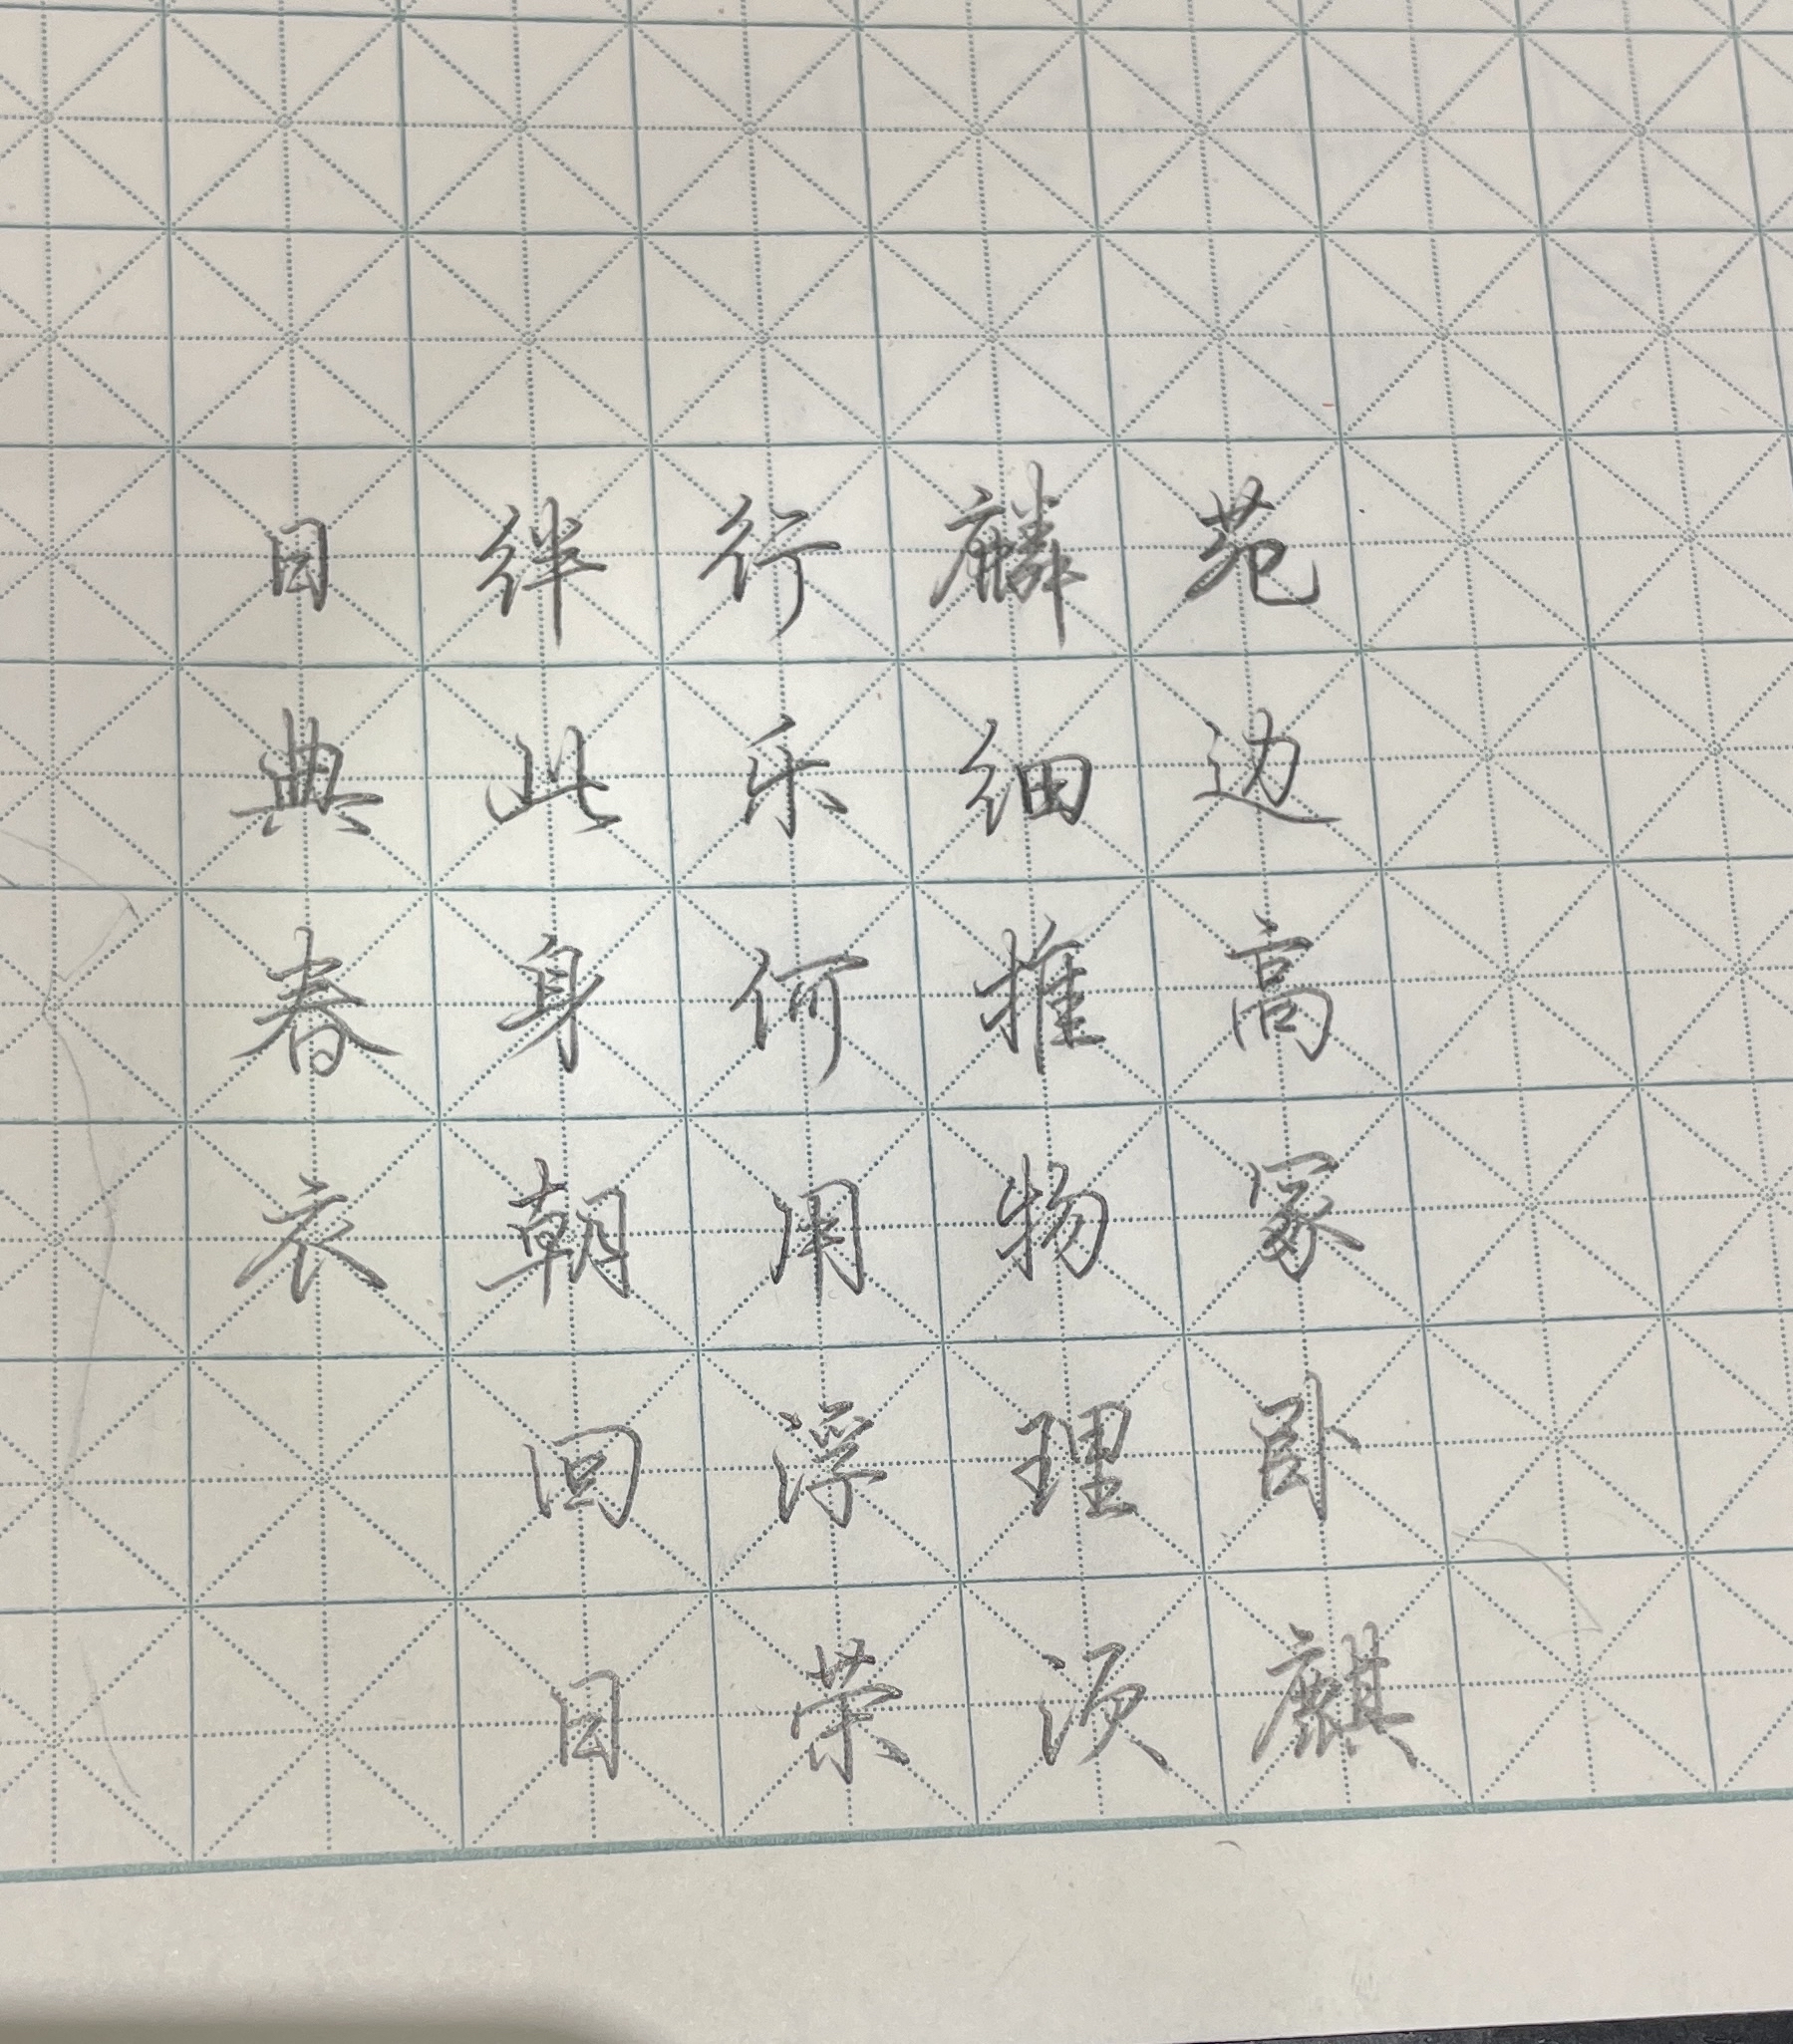 苑边高冢卧麒
麟细推物理须
行乐何用浮荣
绊此身朝回日
日典春衣